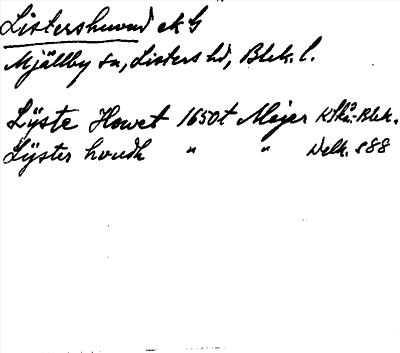 Listershuvud ek G
Mjällby sn, Listers hd, Blek. l.
Lÿste Howet 1650t Mejer Ktka Blek.
Lÿster houdh " " Delk. s 88